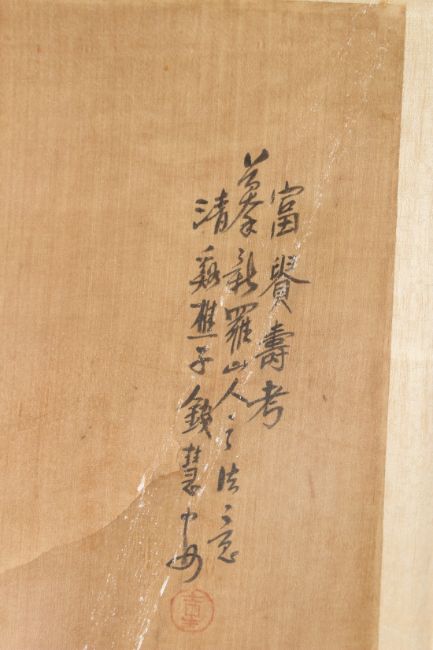 富貴壽考
摹新羅山人之法之意
清谿樵子錢慧安